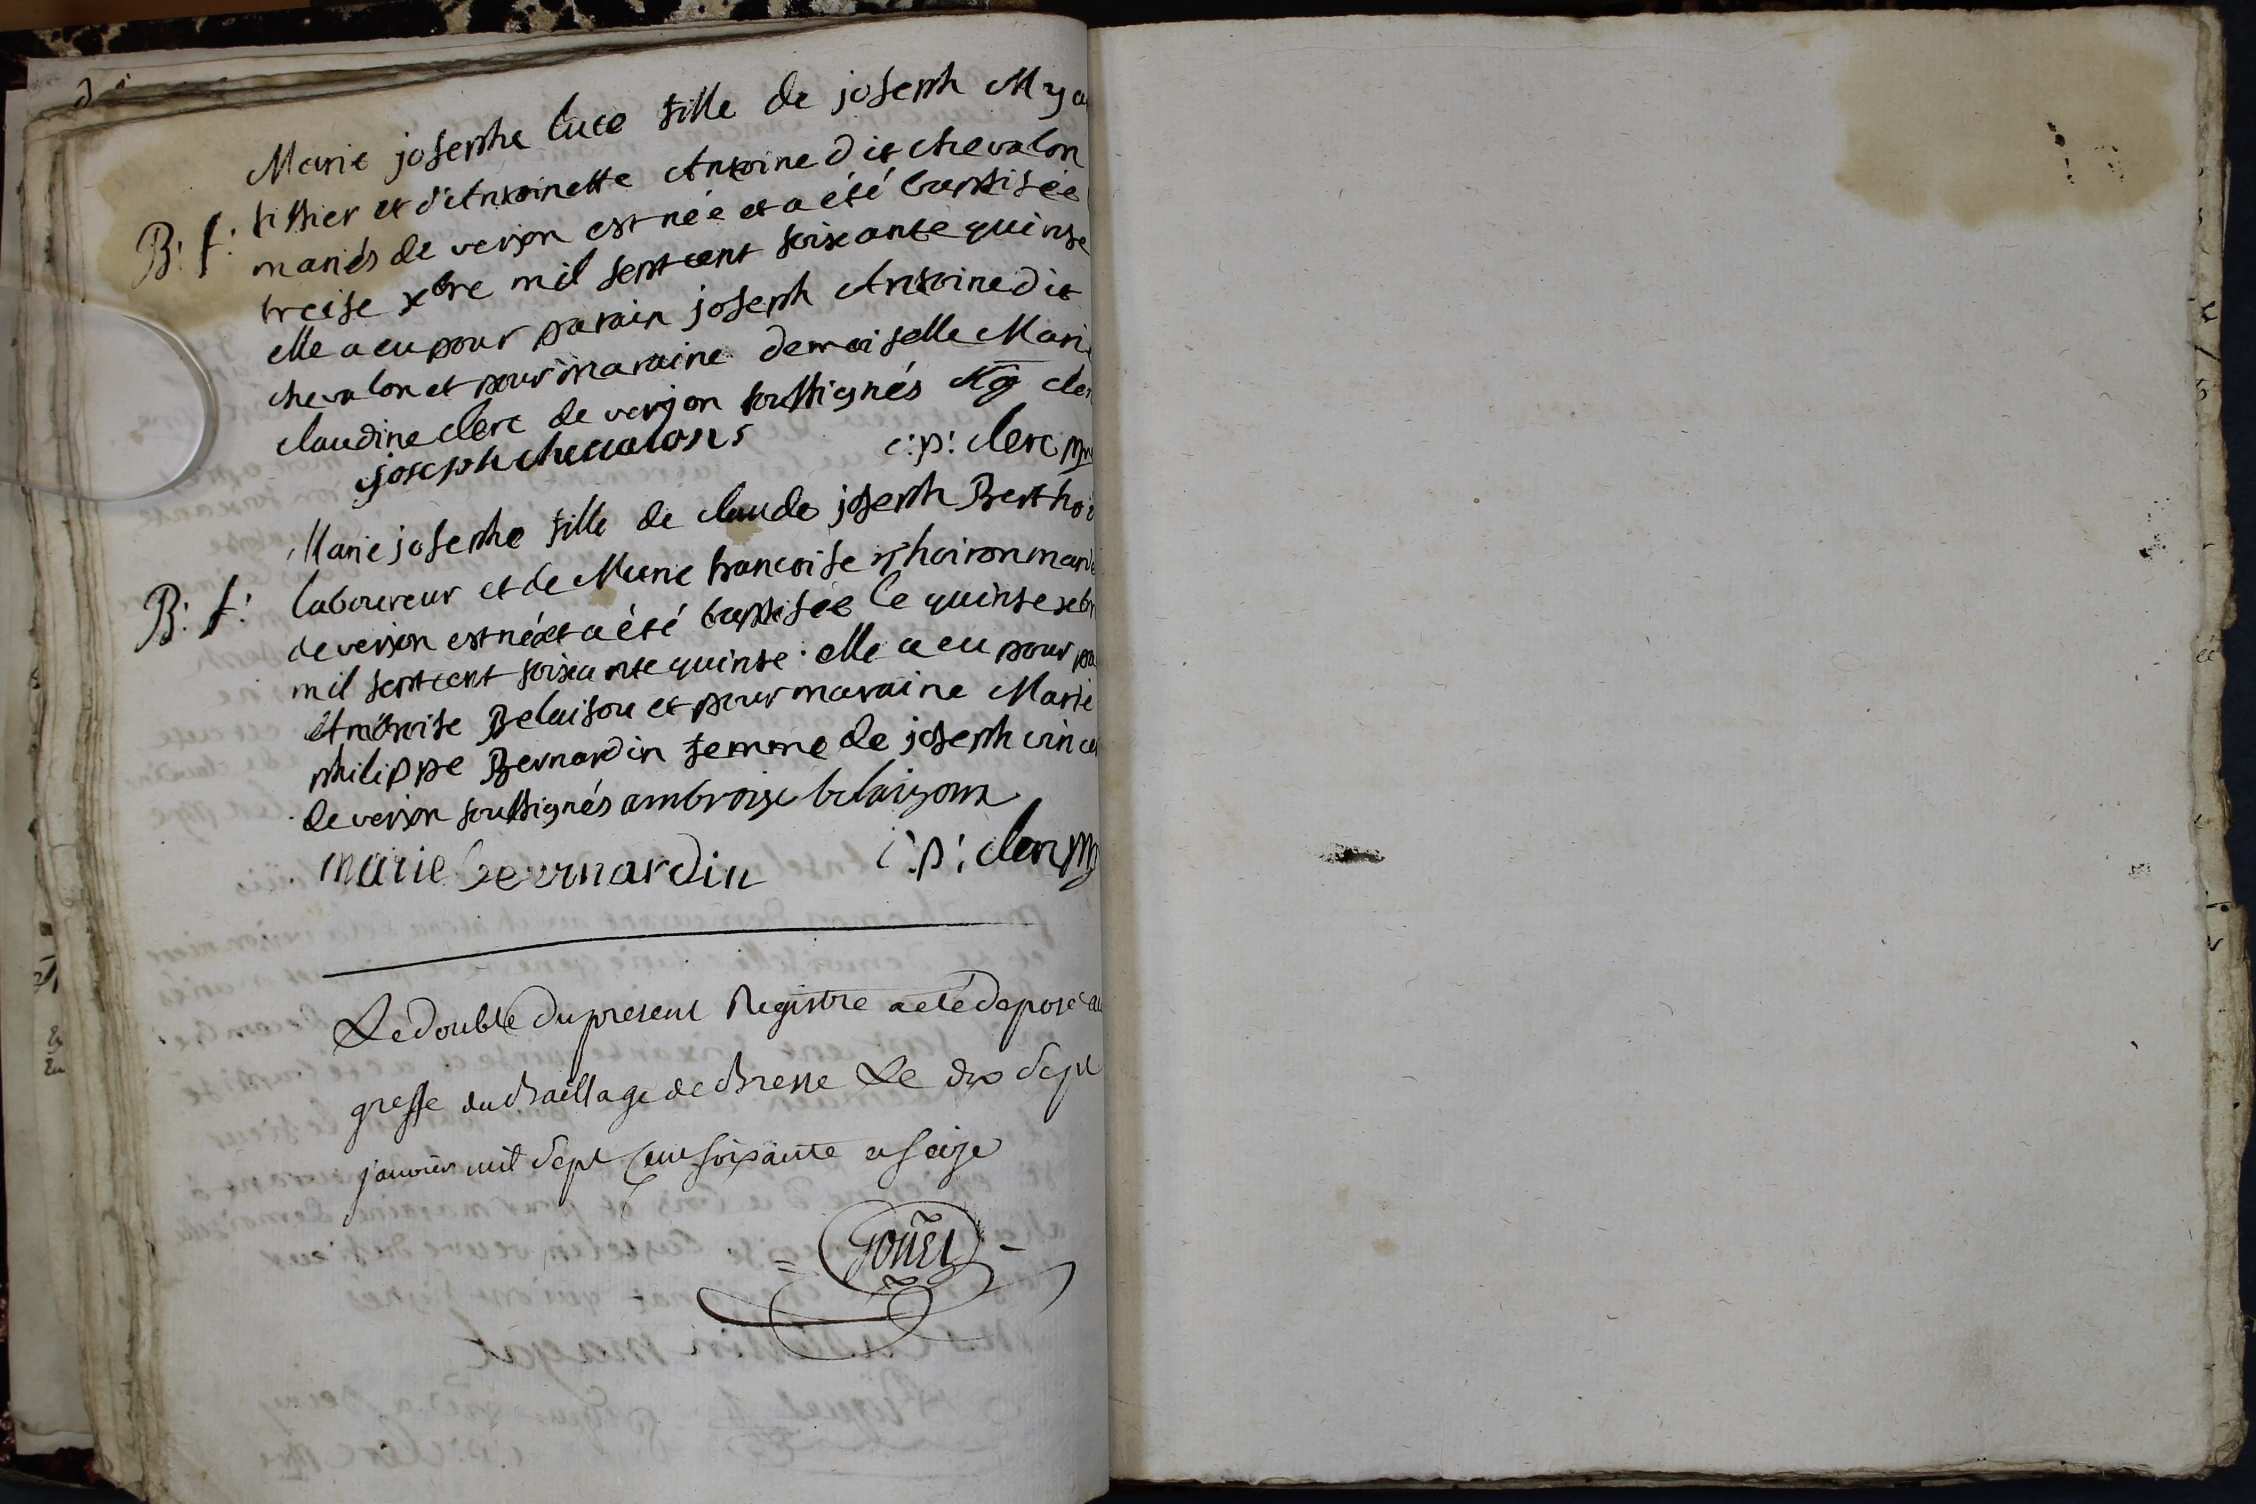 Marie josephe luce fille de joseph Mya
B: f: tissier et d'Antoinette Antoine dit chevalon
mariés de verjon est née et a été baptisée
treise xbre mil septcent soixante quinse
elle a eu pour parain joseph Antoine dit
chevalon et pour maraine demoiselle Mari
claudine clerc de verjon soussignés cler
joseph chevalons c: p: clerc
Marie josephe fille de claude joseph Bertho
B: f: laboureur et de Marie francoise mari
de verjon est née et a été baptisée le quinse xbr
mil septcent soixante quinse: elle a eu pour pa
Ambroise Belaisou et pour maraine Marie
philippe Bernardin femme de joseph vince
de verjon soussignés ambroise belaizoux
marie bernardin c: p: clerc
Le double du present Registre a eté deposé au
greffe du Baillage de Bresse Le dix sept
janvier mil sept cent soixante et seize